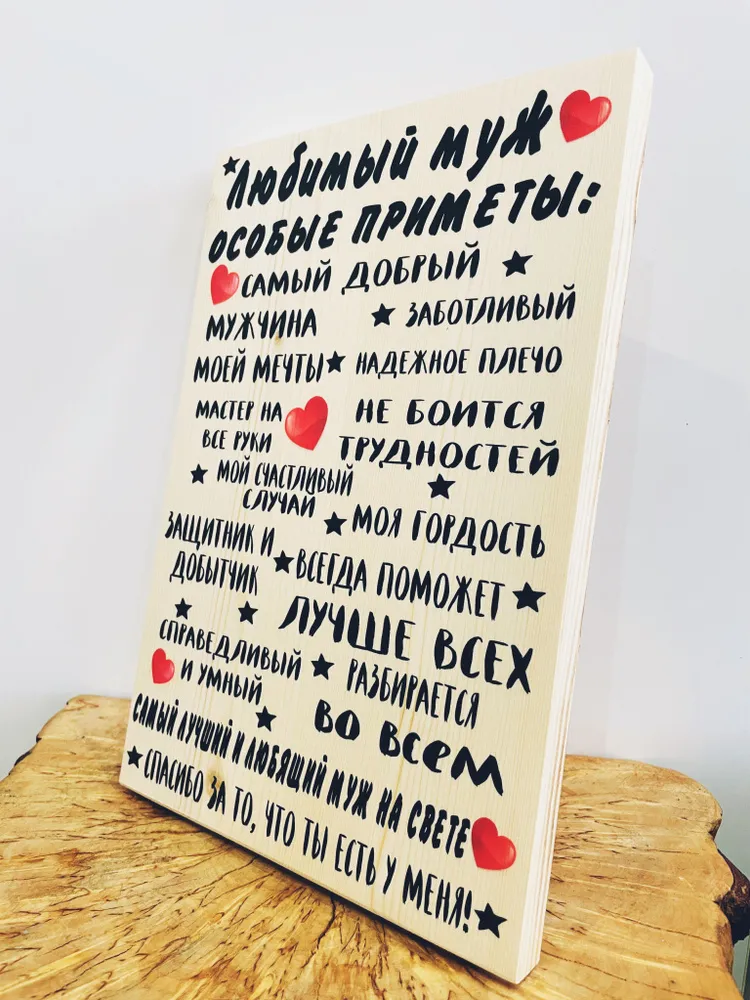 Любимый муж
особые приметы:
самый добрый
мужчина
моей мечты
заботливый
надежное плечо
мастер на
все руки
не боится
трудностей
мой счастливый
случай
моя гордость
защитник и
добытчик
всегда поможет
лучше всех
справедливый
и умный
разбирается
во всем
самый лучший и любящий муж на свете
спасибо за то, что ты есть у меня!